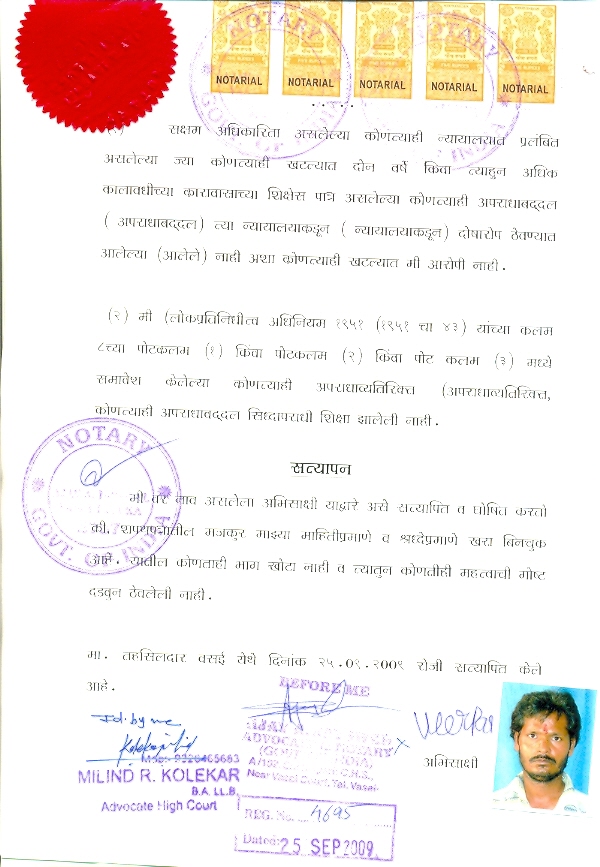 NOTARIAL NOTARIAL NOTARIAL NOTARIAL NOTARIAL
NOTARY
GOVT. OF INDIA
NOTARY
सक्षम अधिकारिता असलेल्या कोणत्याही न्यायालयात प्रलंबित
असलेल्या ज्या कोणत्याही खटल्यात दोन वर्षे किंवा त्याहुन अधिक
कालावधीच्या कारावासाच्या शिक्षेस पात्र असलेल्या कोणत्याही अपराधाबद्दल
( अपराधाबद्दल) त्या न्यायालयाकडून ( न्यायालयाकडून) दोषारोप ठेवण्यात
आलेल्या (आलेले) नाही अशा कोणत्याही खटल्यात मी आरोपी नाही.
(२) मी (लोकप्रतिनिधीत्व अधिनियम १९५१ (१९५१ चा ४३) यांच्या कलम
८च्या पोटकलम (१) किंवा पोटकलम (२) किंवा पोट कलम (३) मध्ये
समावेश केलेल्या कोणत्याही अपराधाव्यतिरिक्त (अपराधाव्यतिरिक्त,
कोणत्याही अपराधाबद्दल सिध्दापराधी शिक्षा झालेली नाही.
NOTARY
GOVT. OF INDIA
सत्यापन
मी वर नाव असलेला अभिसाक्षी याद्वारे असे सत्यापित व घोषित करतो
की, शपथपत्रातील मजकूर माझ्या माहितीप्रमाणे व श्रध्देप्रमाणे खरा बिनचुक
आहे. यातील कोणताही भाग खोटा नाही व त्यातुन कोणतीही महत्वाची गोष्ट
दडवुन ठेवलेली नाही.
मा. तहसिलदार वसई येथे दिनांक २५.०९.२००९ रोजी सत्यापित केले
आहे.
BEFORE ME
Id. by me
ADVOCATE NOTARY
(GOVT. INDIA)
Near Vasai Tal. Vasai
अभिसाक्षी
MILIND R. KOLEKAR
B.A. LL.B.
Advocate High Court
REG. No. 4695
Dated: 25 SEP 2009